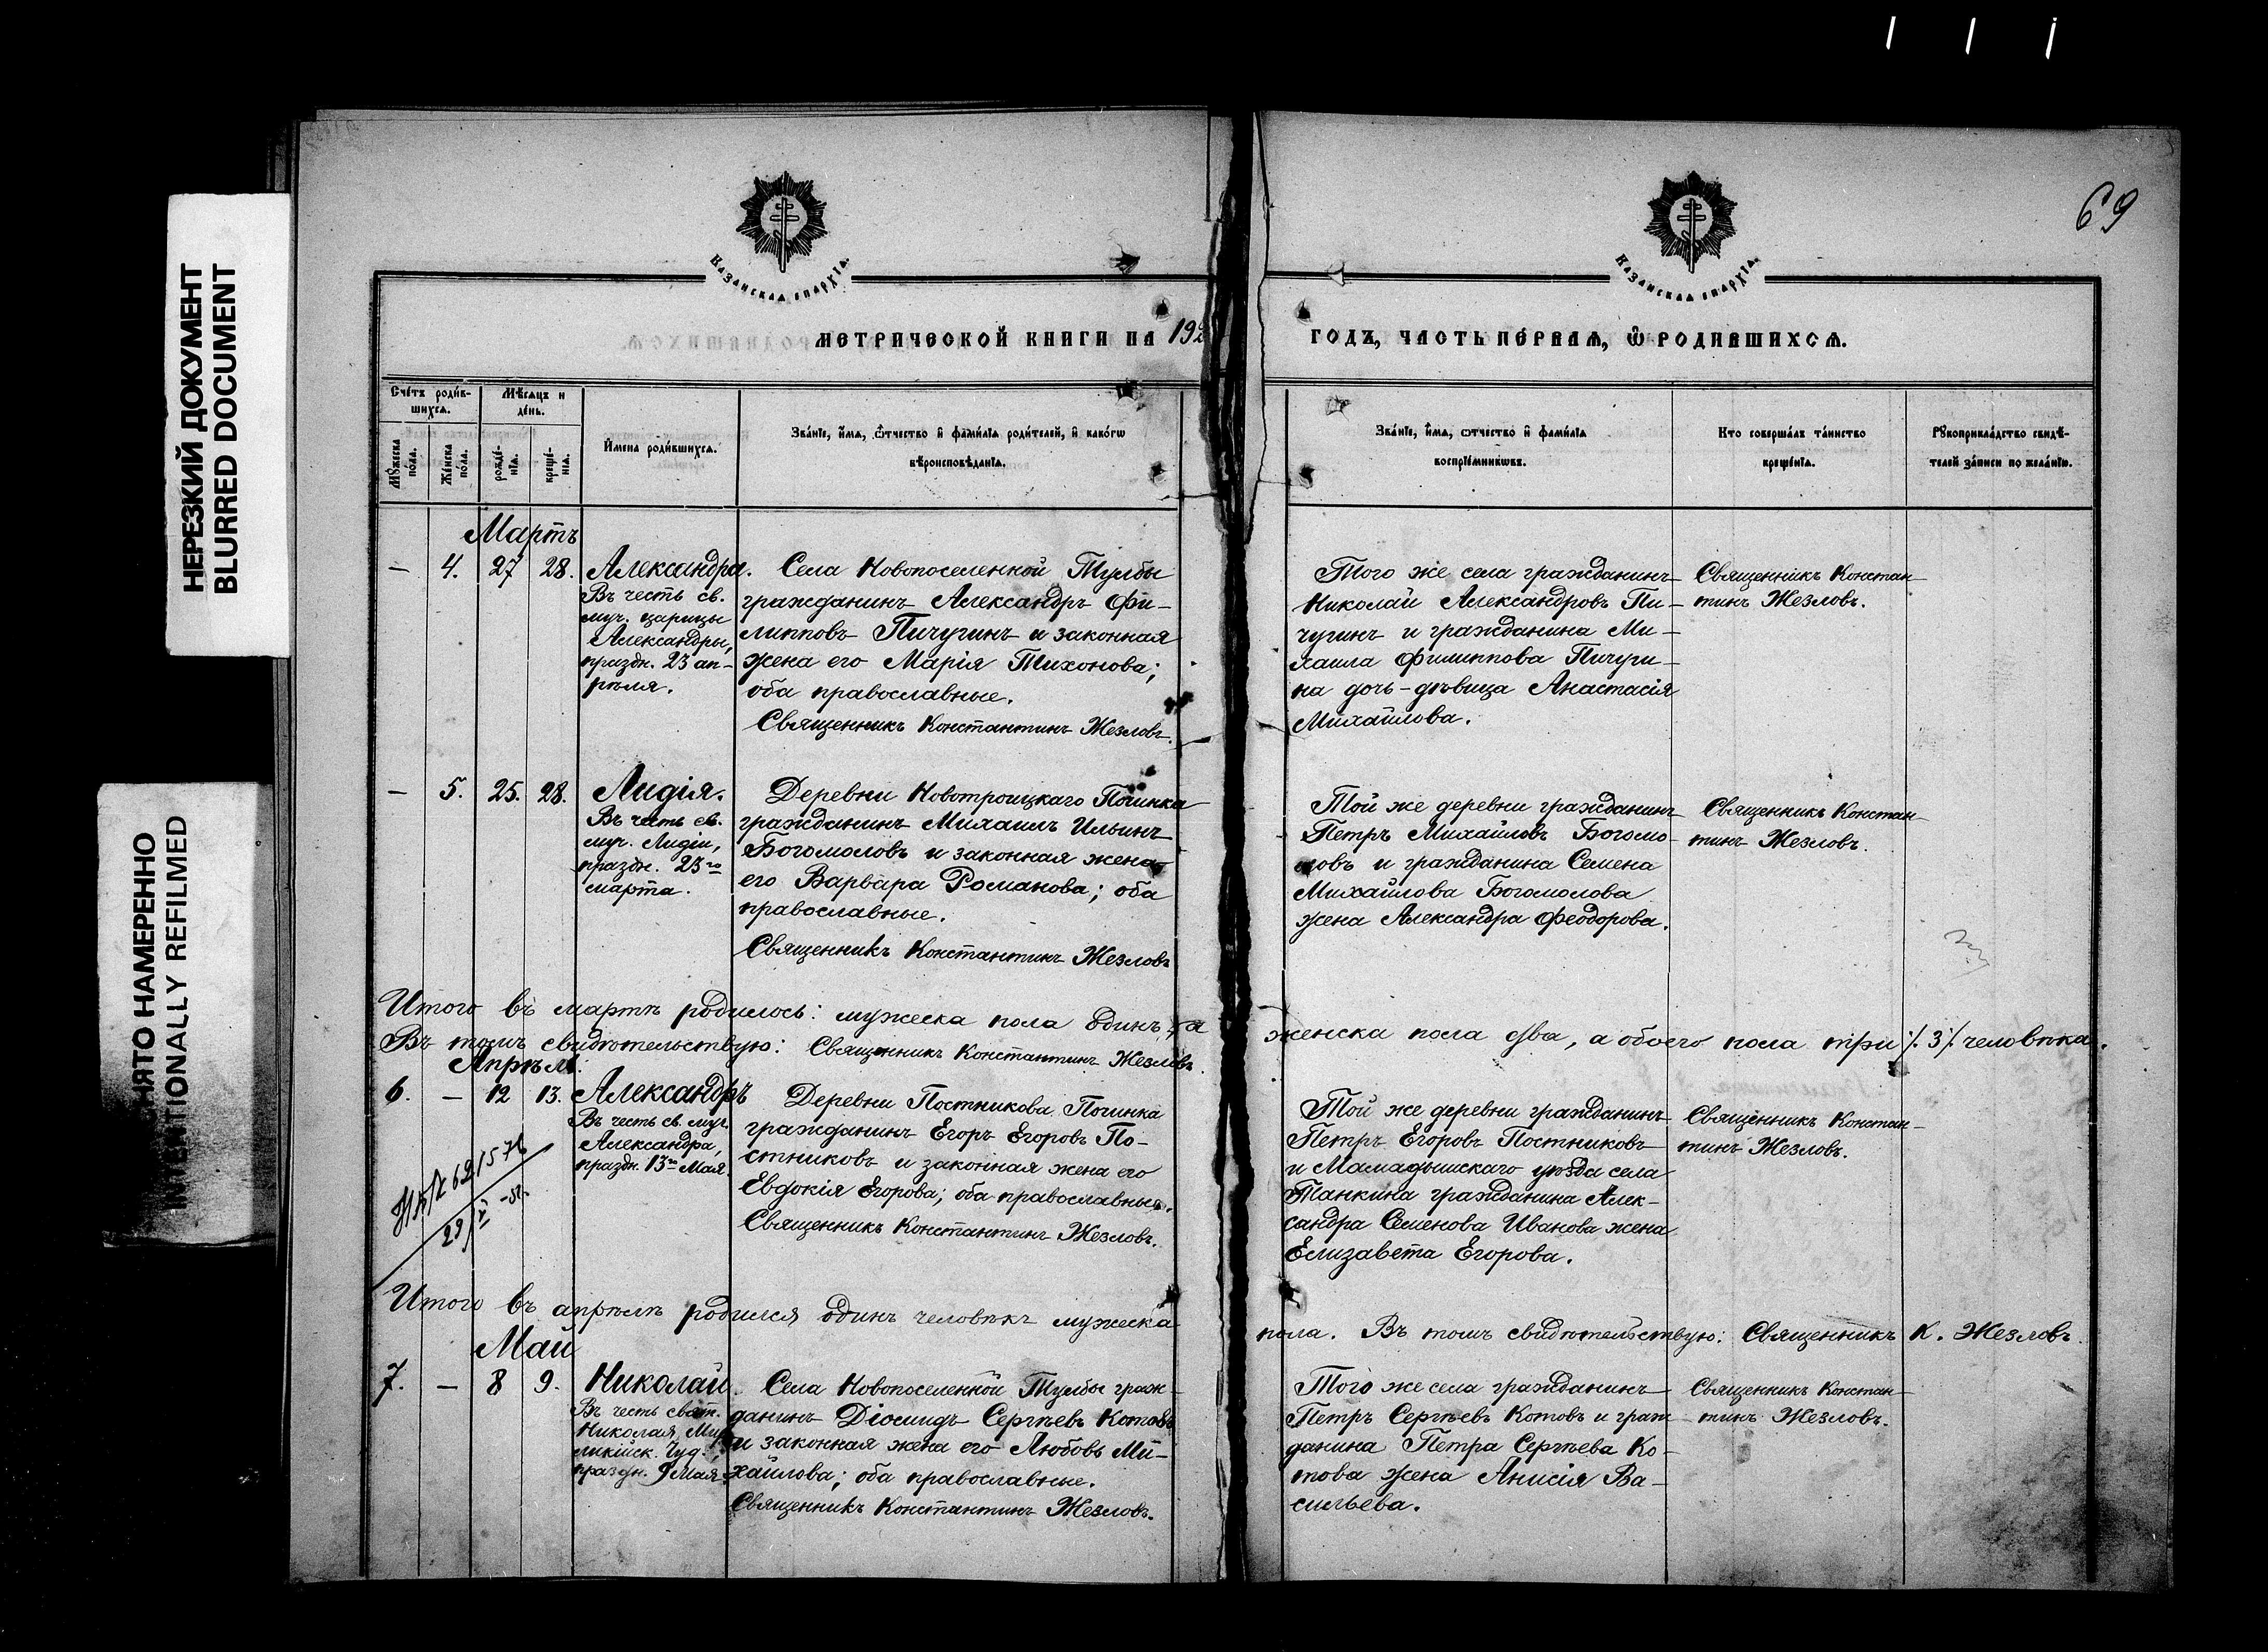 НЕРЕЗКИЙ ДОКУМЕНТ
BLURRED DOCUMENT
НЯТО НАМЕРЕННО
INTENTIONALLY REFILMED
69
КАЗАНСКАЯ ЕПАРХІЯ.
КАЗАНСКАЯ ЕПАРХІЯ.
МЕТРИЧЕСКОЙ КНИГИ НА 192
ГОДЪ, ЧАСТЬ ПЕРВАЯ, Ѡ РОДИВШИХСЯ.
Счетъ родив-
шихся.
Мѣсяцъ и
день.
Мужеска
пола.
Женска
пола.
рожде-
нія.
креще-
нія.
Имена родившихся.
Званіе, имя, ѿчество и фамилія родителей, и какогѡ
вѣроисповѣданія.
Званіе, имя, ѿчество и фамилія
воспріемникѡвъ.
Кто совершалъ таинство
крещенія.
Рукоприкладство свидѣ-
телей записи по желанію.
Мартъ
— 4. 27 28. Александра.
Въ честь св.
муч. царицы
Александры,
праздн. 23 ап-
рѣля.
Села Новопоселенной Тулбы
гражданинъ Александръ Фи-
липповъ Пичугинъ и законная
жена его Марія Тихонова;
оба православные.
Священникъ Константинъ Жезловъ.
Того же села гражданинъ
Николай Александровъ Пи-
чугинъ и гражданина Ми-
хаила Филиппова Пичуги-
на дочь-дѣвица Анастасія
Михайлова.
Священникъ Констан-
тинъ Жезловъ.
— 5. 25. 28. Лидія.
Въ честь св.
муч. Лидіи,
праздн. 23го
марта.
Деревни Новотроицкаго Починка
гражданинъ Михаилъ Ильинъ
Богомоловъ и законная жена
его Варвара Романова; оба
православные.
Священникъ Константинъ Жезловъ
Той же деревни гражданинъ
Петръ Михайловъ Богомо-
ловъ и гражданина Семена
Михайлова Богомолова
жена Александра Феодорова.
Священникъ Констан-
тинъ Жезловъ.
Итого въ мартѣ родилось: мужеска пола одинъ, а женска пола два, а обоего пола три ·/. 3 ·/. человѣка.
Въ томъ свидѣтельствую: Священникъ Константинъ Жезловъ.
Апрѣль.
6. — 12 13. Александръ
Въ честь св. муч.
Александра,
праздн. 13го Мая.
Деревни Постникова Починка
гражданинъ Егоръ Егоровъ По-
стниковъ и законная жена его
Евдокія Егорова; оба православные.
Священникъ Константинъ Жезловъ.
Той же деревни гражданинъ
Петръ Егоровъ Постниковъ
и Мамадышскаго уѣзда села
Танкина гражданина Алек-
сандра Семенова Иванова жена
Елизавета Егорова.
Священникъ Констан-
тинъ Жезловъ.
Итого въ апрѣлѣ родился одинъ человѣкъ мужеска пола. Въ томъ свидѣтельствую: Священникъ К. Жезловъ.
Май
7. — 8 9. Николай.
Въ честь свят.
Николая, Мир-
ликійск. Чуд.,
праздн. 9 Мая.
Села Новопоселенной Тулбы граж-
данинъ Діомидъ Сергѣевъ Котовъ
и законная жена его Любовь Ми-
хайлова; оба православные.
Священникъ Константинъ Жезловъ.
Того же села гражданинъ
Петръ Сергѣевъ Котовъ и граж-
данина Петра Сергѣева Ко-
това жена Анисія Ва-
сильева.
Священникъ Констан-
тинъ Жезловъ.